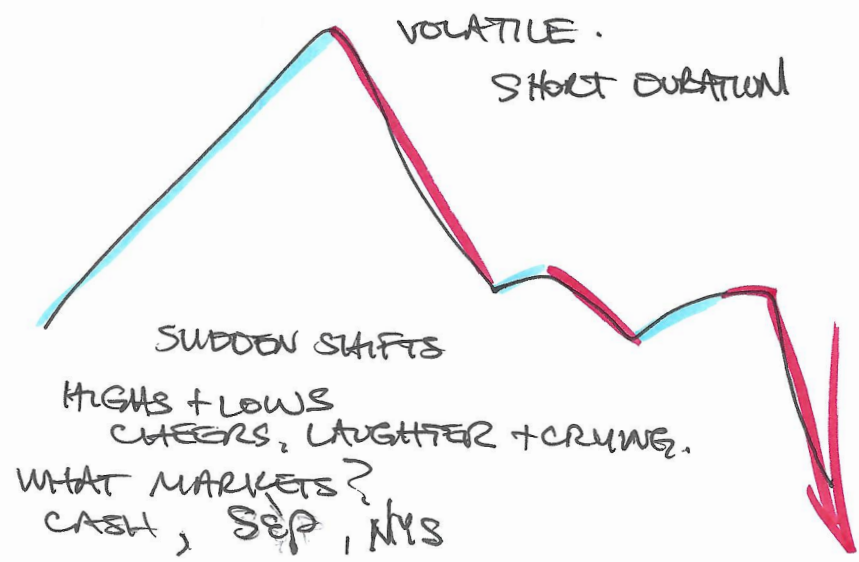 VOLATILE.
SHORT DURATION
SUDDEN SHIFTS
HIGHS + LOWS
CHEERS, LAUGHTER + CRYING.
WHAT MARKETS?
CASH, S&P, NYS